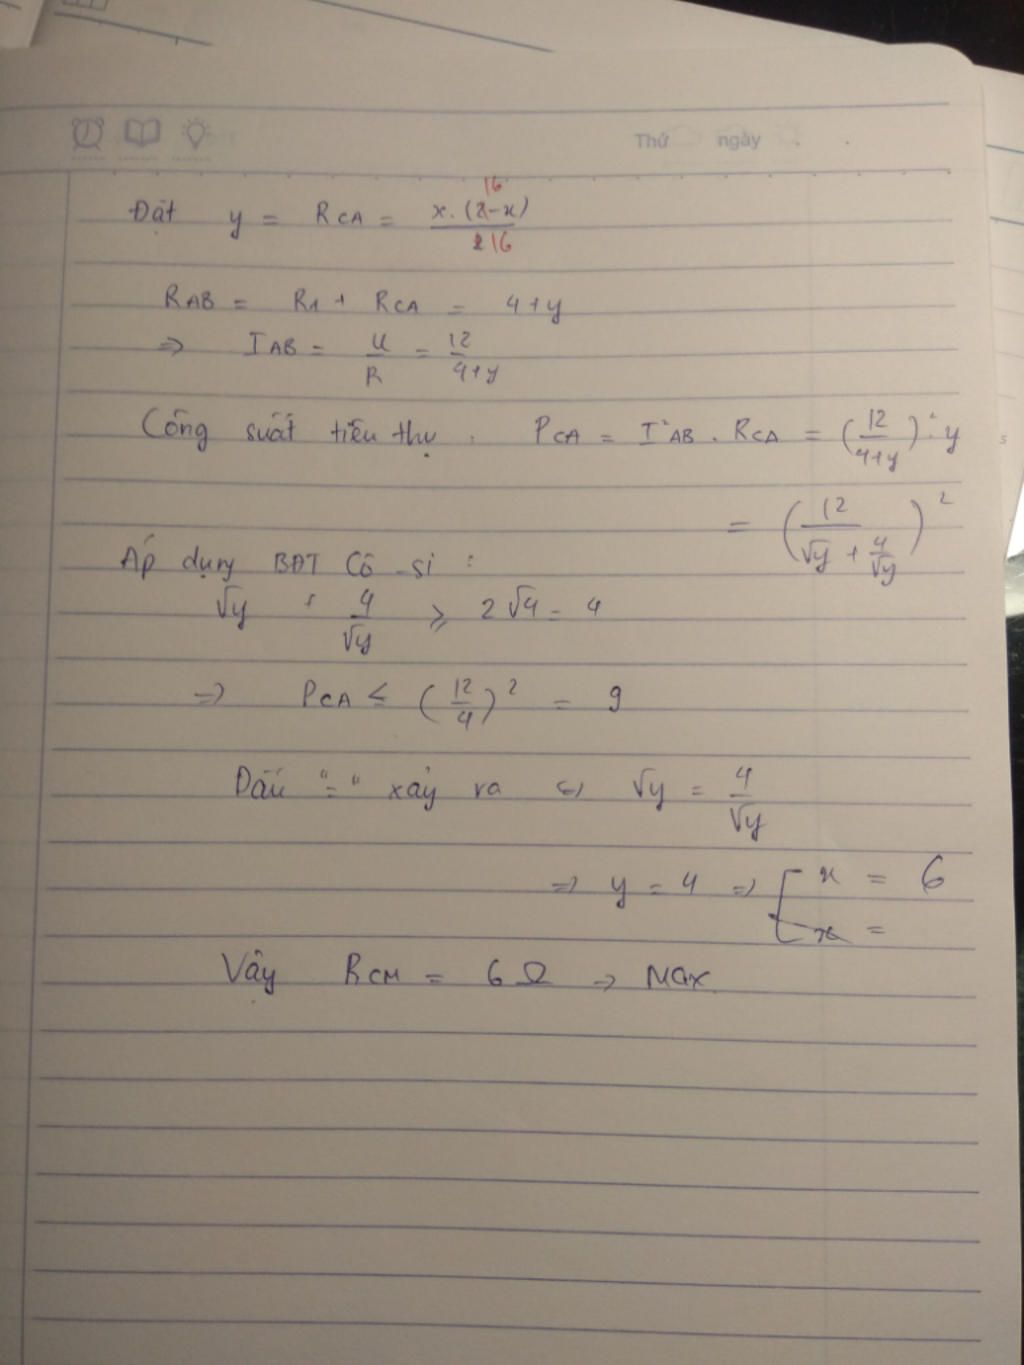 Thứ ngày
Đặt y = RCA = x.(16-x) / 16
RAB = R1 + RCA = 4+y
=> IAB = U/R = 12/4+y
Công suất tiêu thụ : PCA = I²AB . RCA = (12/4+y)² . y
= (12/√y + 4/√y)²
Áp dụng BĐT Cô-si :
√y + 4/√y ≥ 2√4 = 4
=> PCA ≤ (12/4)² = 9
Dấu "=" xảy ra <=> √y = 4/√y
=> y = 4 => [ x = 6
x =
Vậy RCM = 6Ω -> Max